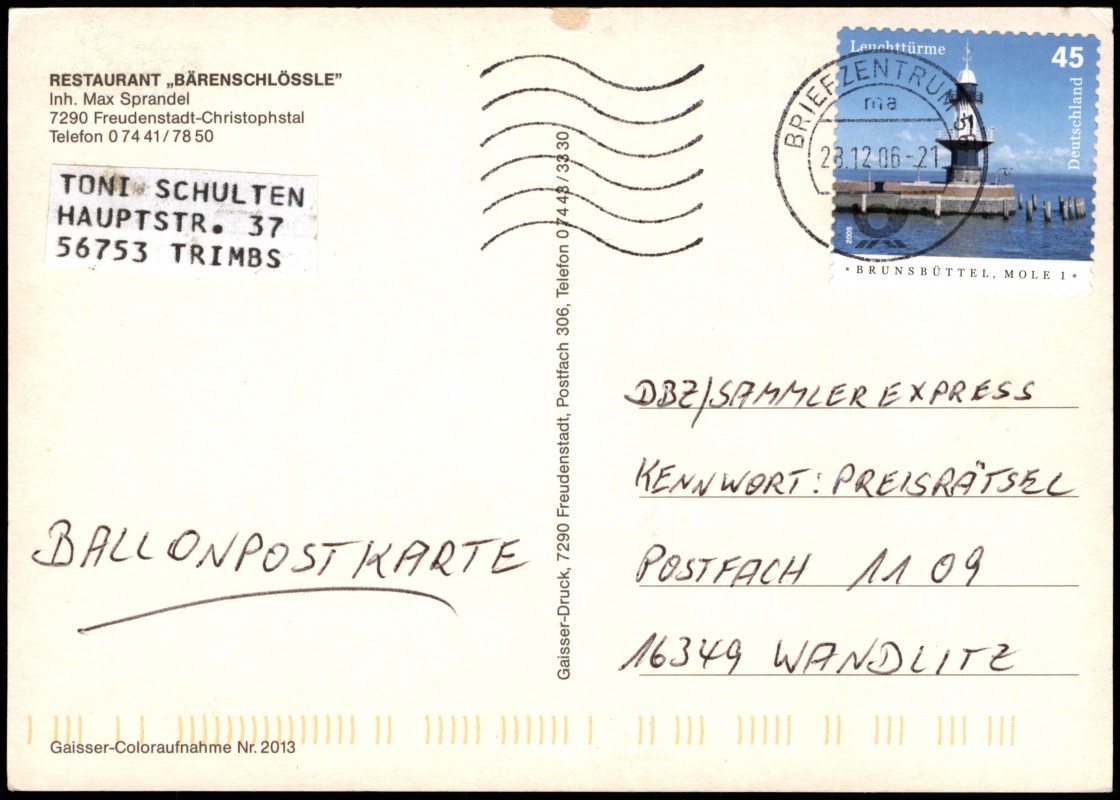 RESTAURANT „BÄRENSCHLÖSSLE”
Inh. Max Sprandel
7290 Freudenstadt-Christophstal
Telefon 0 74 41 / 78 50
TONI SCHULTEN
HAUPTSTR. 37
56753 TRIMBS
BALLONPOSTKARTE
Gaisser-Coloraufnahme Nr. 2013
Gaisser-Druck, 7290 Freudenstadt, Postfach 306, Telefon 0 74 43 / 33 30
BRIEFZENTRUM 56
ma
28.12.06-21
Leuchttürme
45
Deutschland
2005
* BRUNSBÜTTEL, MOLE 1 *
DBZ/SAMMLER EXPRESS
KENNWORT: PREISRÄTSEL
POSTFACH 11 09
16349 WANDLITZ